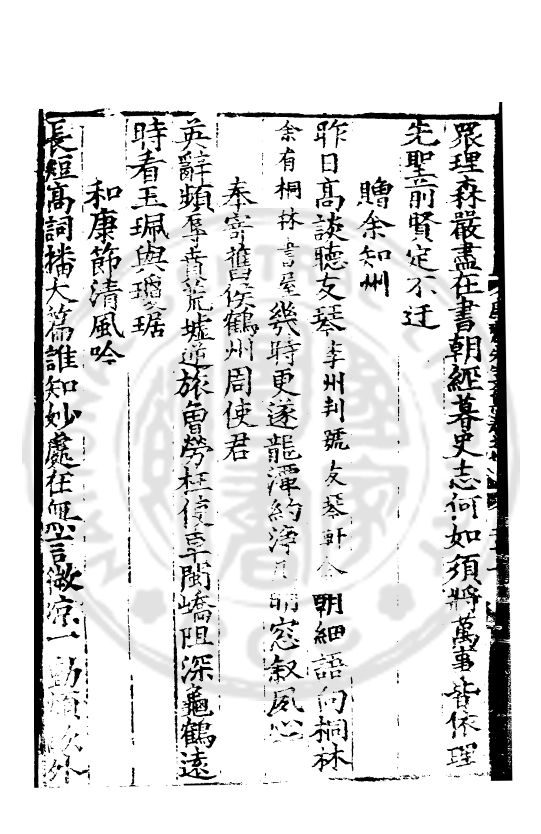 衆理森嚴盡在書朝經暮史志何如須將萬事皆依理
先聖前賢定不迂
贈余知州
昨日高談聽友琴李州判號友琴軒今朝細語向桐林
余有桐林書屋幾時更遂龍潭約淨 晴窓叙風心
奉寄舊侯鶴州周使君
英辭頻辱賁荒墟逆旅曾勞枉使車閩嶠阻深龜鶴遠
時看玉珮與瓊琚
和康節清風吟
長短高詞播大篇誰知妙處在無言微凉一動煩 外